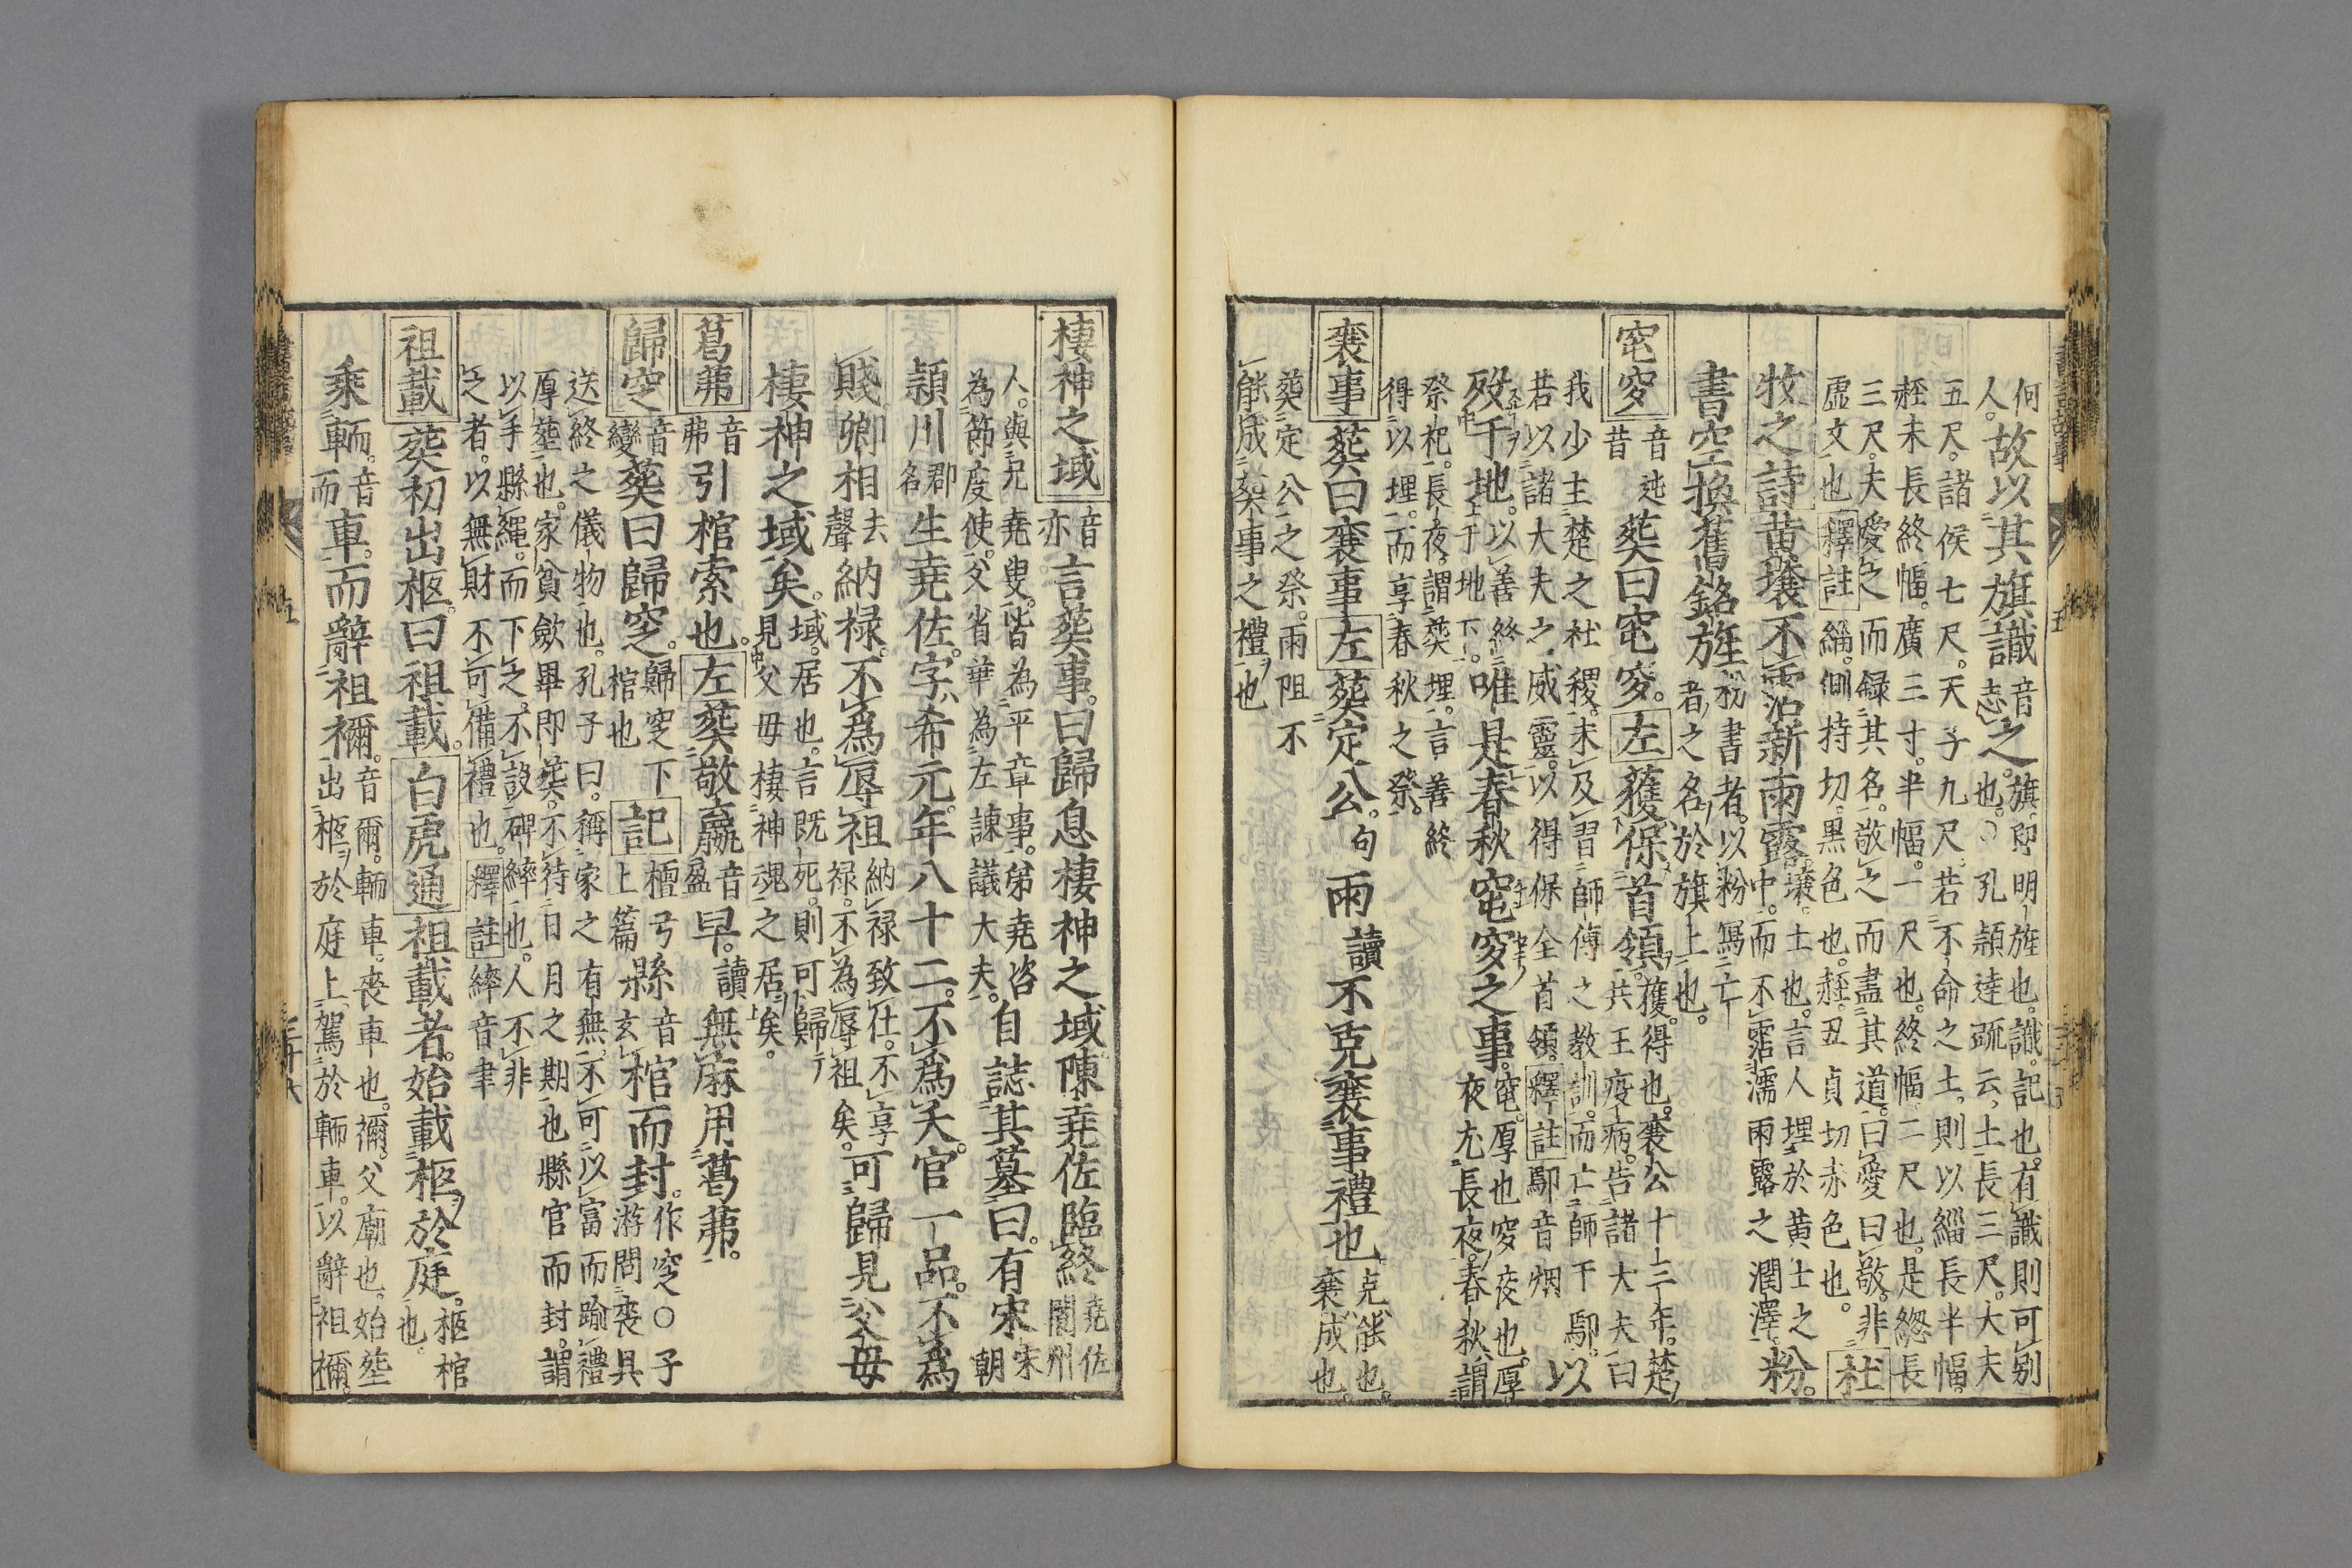 何人。故以其旗識音志之。旗。即明旌也。識。記也。有識則可別也。○孔穎達疏云。士長三尺。大夫
五尺。諸侯七尺。天子九尺。若不命之士。則以緇長半幅。
經末長終幅。廣三寸。半幅。一尺也。終幅。二尺也。是總長
三尺。夫愛之而録其名。敬之而盡其道。曰愛曰敬。非
虛文也釋註緇。側持切。黒色也。赬。丑貞切赤色也。杜
牧之詩黄壤不霑新雨露壤。土也。言人埋於黄土之中。而不霑濡雨露之潤澤。粉
書空換舊銘旌粉書者。以粉寫亡者之名於旗上也。
窀穸音迍昔葬曰窀穸。左獲保首領獲。得也。襄公十三年。楚共王疫病。告諸大夫曰
我少主楚之社稷。未及習師傅之教訓。而亡師于鄢。以
若以諸大夫之威靈。以得保全首領。釋註鄢音烟
歿于地。以善終于地下。唯是春秋窀穸之事。窀。厚也穸夜也。厚夜尤長夜。春秋謂
祭祀。長夜。謂葬埋。言善終
得以埋。而享春秋之祭。
襄事葬曰襄事左葬定公。句雨讀不克襄事禮也克。能也。襄成也。
葬定公之祭。雨阻不
能成葬事之禮也
棲神之域音亦言葬事。曰歸息棲神之域陳堯佐臨終堯佐閬州
人。與兄堯叟。皆為平章事。弟堯咨
為節度使。父省華為左諫議大夫。自誌其墓曰。有宋宋朝
穎川郡名生堯佐。字希元。年八十二。不為夭。官一品。不為
賤卿相去聲納禄。不為辱祖納禄致仕。不享禄。不為辱祖矣。可歸見父母
棲神之域矣。域。居也。言既死。則可歸見父母棲神魂之居矣。
葛茀音弗引棺索也。左葬敬嬴音盈早。讀無麻用葛茀。
歸窆音變葬曰歸窆。歸窆下棺也記檀弓上篇縣音玄棺而封。作窆○子游問喪具
送終之儀物也。孔子曰。稱家之有無。不可以富而踰禮
厚塟也。家貧斂畢即葬。不待日月之期也縣官而封。謂
以手縣繩。而下之。不設碑繂也。人不非
之者。以無財不可備禮也。釋註繂音聿
祖載葬初出柩。曰祖載。白虎通祖載者。始載柩於庭。柩棺也。
乗輀。音而車。而辭祖禰。音爾。輀車。喪車也。禰。父廟也。始塟出柩於庭上駕於輀車。以辭祖禰。